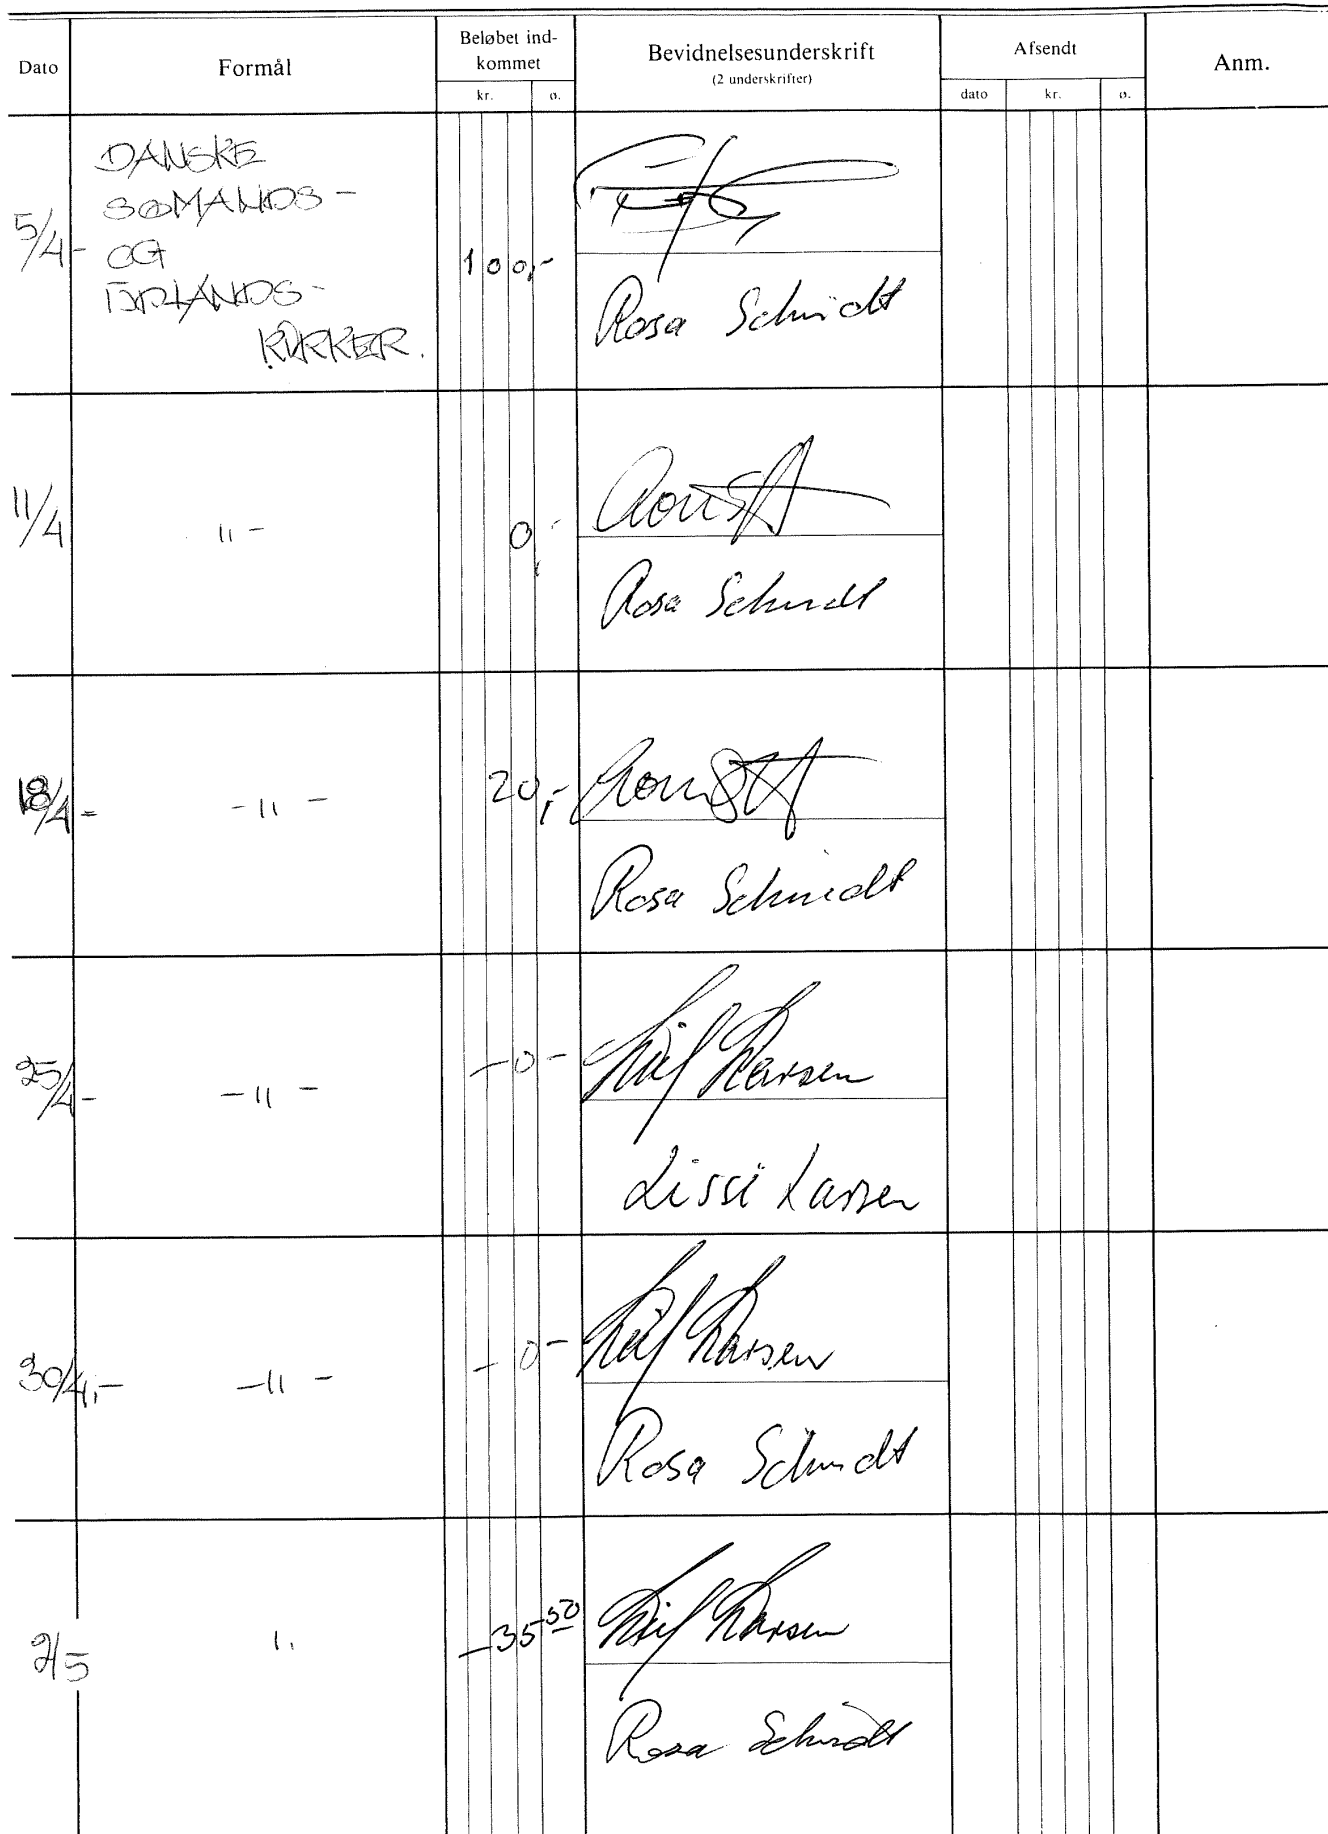 Dato
Formål
Beløbet ind-
kommet
kr.
ø.
Bevidnelsesunderskrift
(2 underskrifter)
Afsendt
dato
kr.
ø.
Anm.
5/4-
DANSKE
SØMANDS-
OG
UDLANDS-
KIRKER.
100,-
Rosa Schmidt
11/4
" -
0,-
Rosa Schmidt
18/4-
- " -
20,-
Rosa Schmidt
25/4-
- " -
- 0 -
Leif Larsen
Lissi Larsen
30/4,-
- " -
- 0 -
Leif Larsen
Rosa Schmidt
2/5
"
-35 50
Leif Larsen
Rosa Schmidt